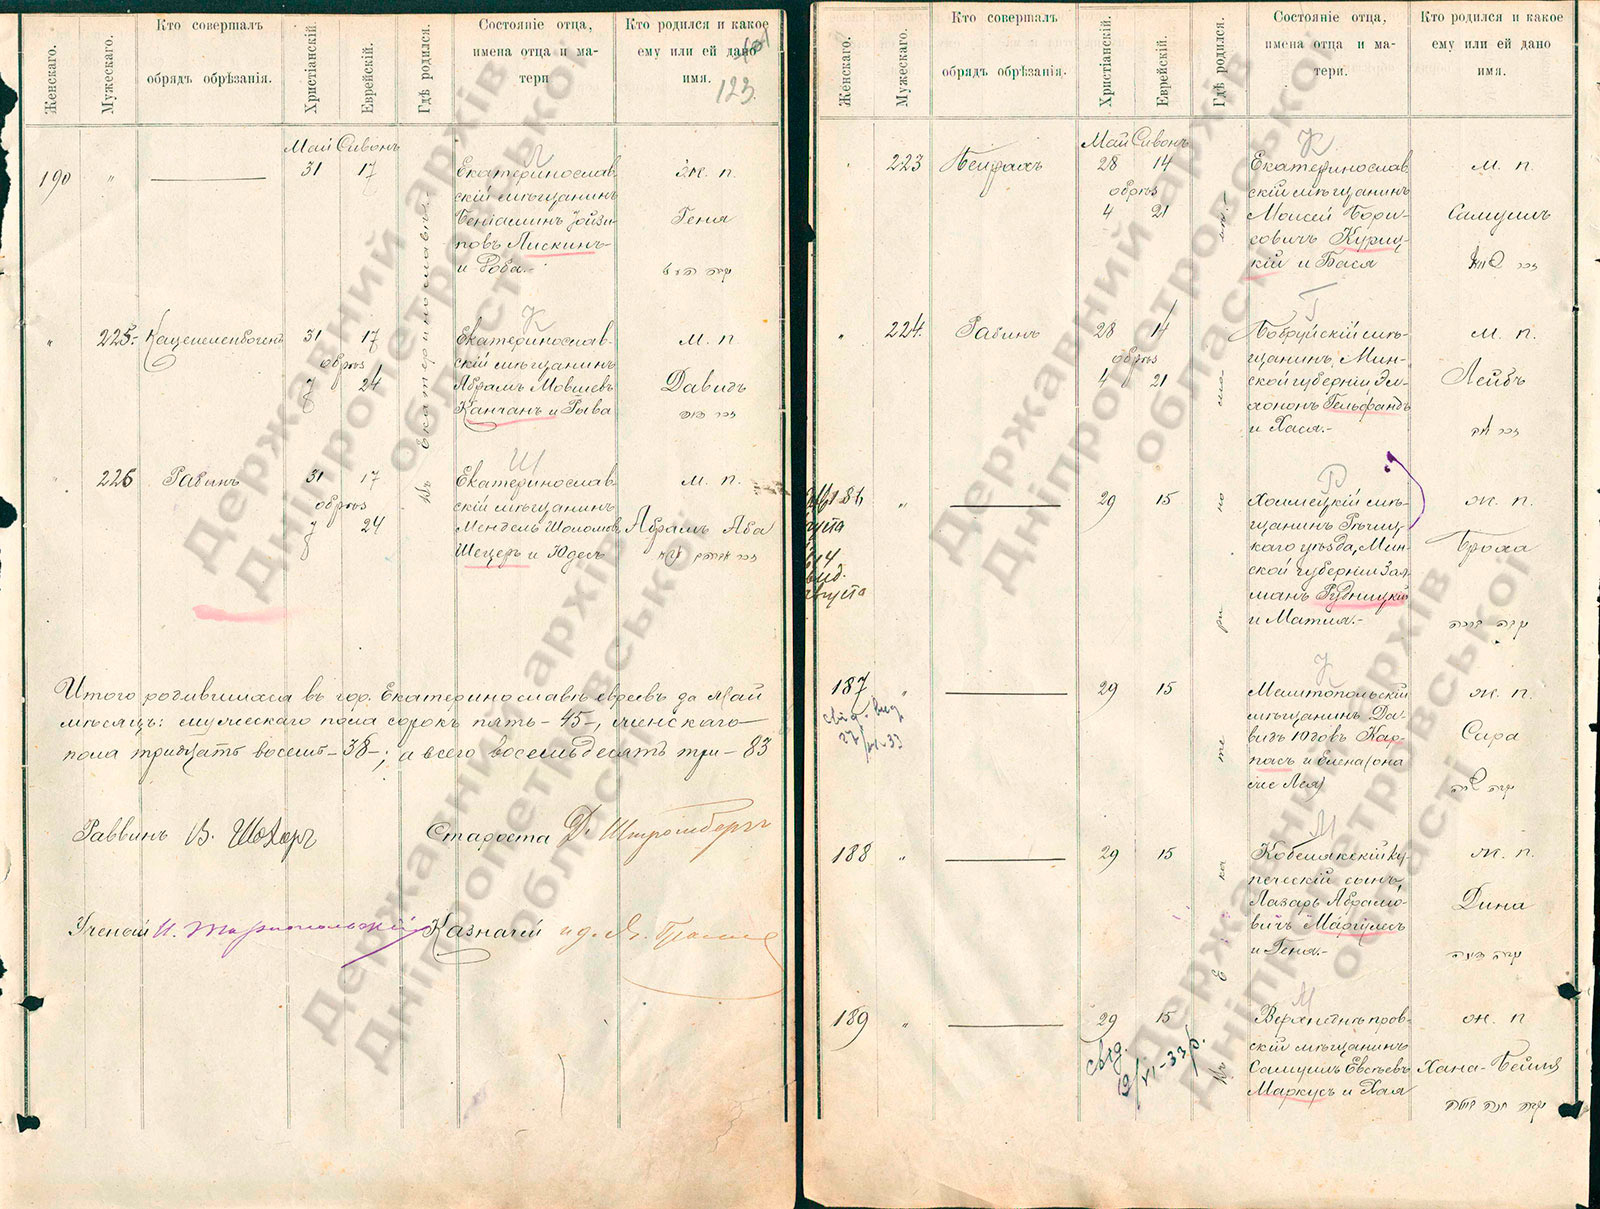 Женскаго.
Мужескаго.
Кто совершалъ
обрядъ обрѣзанія.
Христіанскій.
Еврейскій.
Гдѣ родился.
Состояніе отца,
имена отца и ма-
тери
Кто родился и какое
ему или ей дано
имя.
123.
Май Сивонъ
190 " 31 17
Екатеринослав
скій мѣщанинъ
Беніаминъ
повъ Пискинъ
и Роба.-
Ж. п.
Геня
Въ Екатеринославѣ.-
" 225- Каценеленбогенъ 31 17
обрѣз
7 24
К
Екатеринослав-
скій мѣщанинъ
Абрамъ Мовшевъ
Канчанъ и Рыва
М. п.
Давидъ
" 226 Рабинъ 31 17
обрѣз
7 24
Ш
Екатеринослав
скій мѣщанинъ
Мендель Шоломовъ
Шецеръ и Юдесъ
М. п.
Абрамъ Аба
Итого родившихся въ гор. Екатеринославѣ евреевъ за Май
мѣсяцъ: мужескаго пола сорокъ пять - 45 -, женскаго
пола тридцать восемь - 38 -; а всего восемьдесятъ три - 83
Раввинъ В. Шохоръ
Староста Д. Штромбергъ
Ученый И. Маріопольскій
Казначей
Женскаго.
Мужескаго.
Кто совершалъ
обрядъ обрѣзанія.
Христіанскій.
Еврейскій.
Гдѣ родился.
Состояніе отца,
имена отца и ма-
тери.
Кто родился и какое
ему или ей дано
имя.
Май Сивонъ
" 223 Бейрахъ 28 14
обрѣз
4 21
К
Екатеринослав
скій мѣщанинъ
Моисей Бори-
совичъ Куриц-
кій и Бася
М. п.
Самуилъ
" 224. Рабинъ 28 14
обрѣз
4 21
Г
Бобруйскій мѣ-
щанинъ, Мин-
ской губерніи Со-
ломонъ Гельфандъ
и Хася.-
М. п.
Лейбъ
186 " 29 15
августа
Р
Холмецкій мѣ-
щанинъ Рѣчиц-
каго уѣзда, Мин-
ской губерніи Зал-
манъ Рудницкій
и Матля.-
Ж. п.
Броха
187 " 29 15
свид. выд
27/VI-33
К
Мелитопольскій
мѣщанинъ Да-
видъ Юдовъ Кар-
пасъ и Елена (она
же Лея)
Ж. п.
Сара
188 " 29 15
М
Кобелякскій ку-
печескій сынъ,
Лазарь Абрамо-
вичъ Маргулесъ
и Геня.-
Ж. п.
Дина
189 " 29 15
свід.
19/VI-33 р.
М
Верхнеднѣпров-
скій мѣщанинъ
Самуилъ Евсѣевъ
Маркусъ и Хая
Ж. п
Хана-Бейля
Въ Екатеринославѣ.-
Державний архів
Дніпропетровської
області
Державний архів
Дніпропетровської
області
Державний архів
Дніпропетровської
області
Державний архів
Дніпропетровської
області